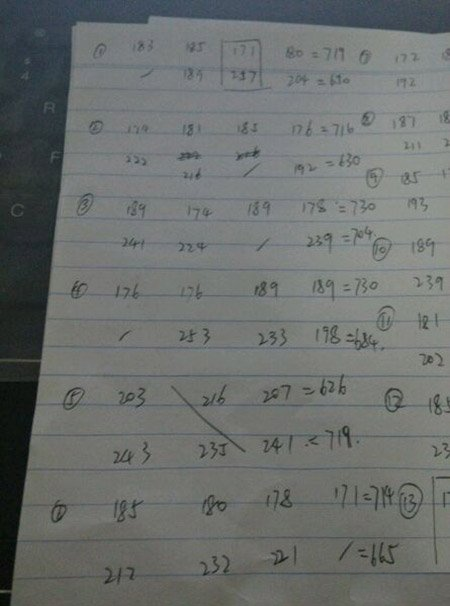 ① 183 185 171 80 = 719 ⑦ 172 18
/ 189 237 204 = 630 192
② 179 181 185 176 = 716 ⑧ 187 18
222 216 / 192 = 630 211 2
③ 189 174 189 178 = 730 ⑨ 185 17
241 224 / 239 = 704 193
④ 176 176 189 189 = 730 ⑩ 189
/ 253 233 198 = 684. 239
⑤ 203 216 207 = 626 ⑪ 181
243 235 241 = 719. 202
185 180 178 171 = 714 ⑫ 185
212 232 221 / = 665 23
⑬ 1
R
F
C